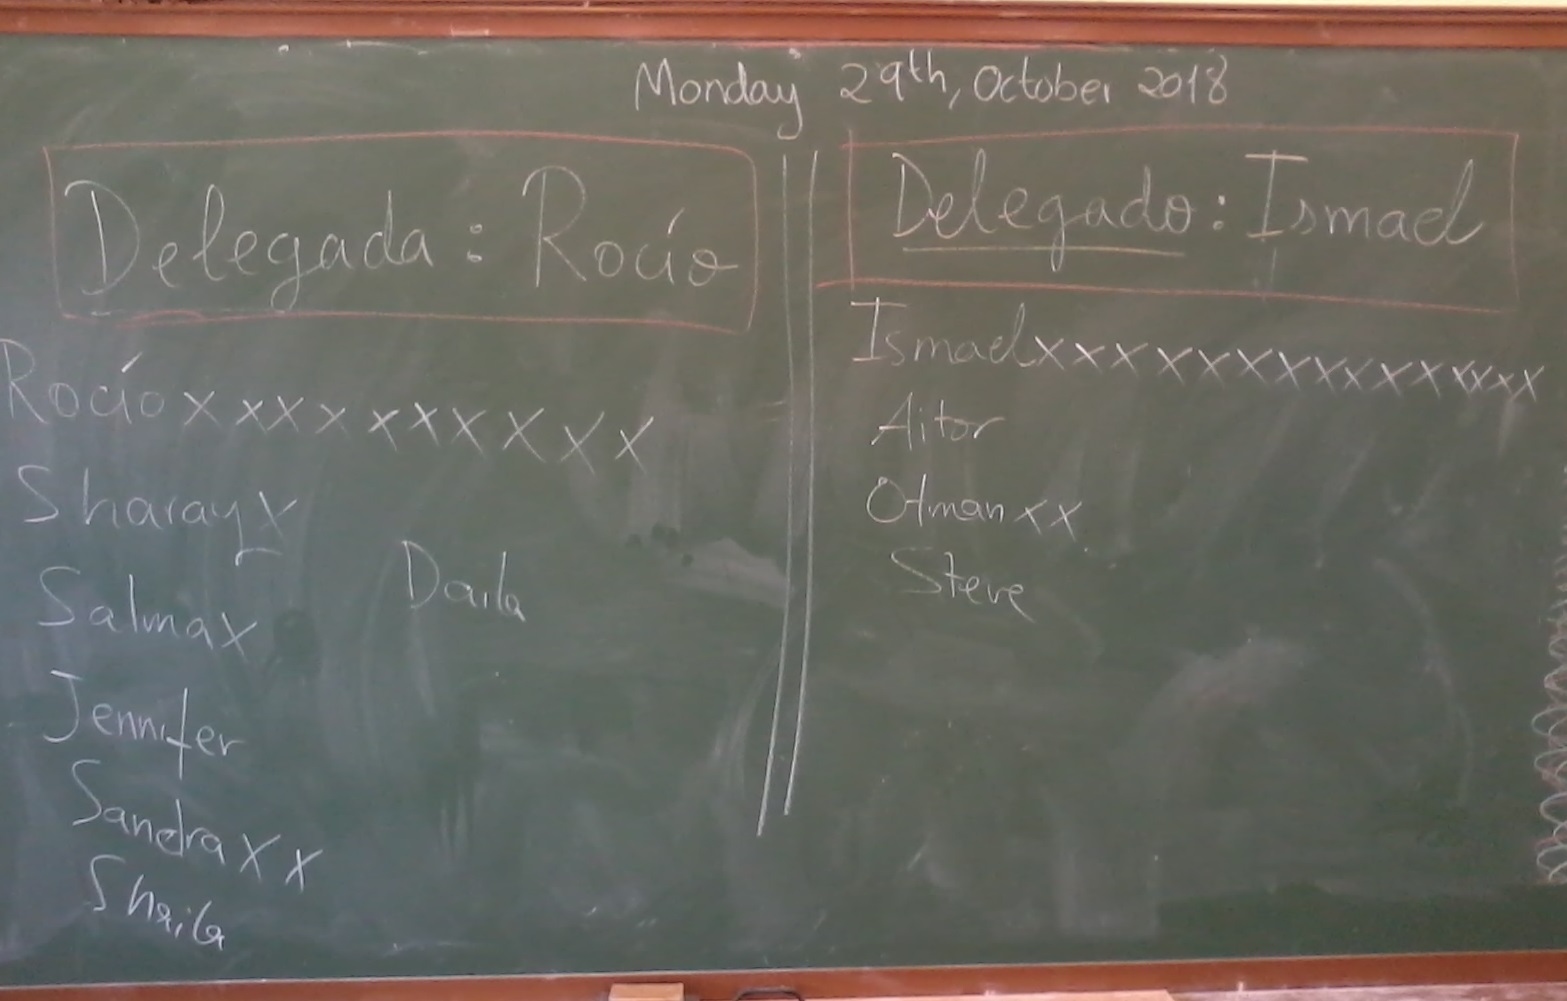 Monday 29th, October 2018
Delegada : Rocío
Rocío x x x x x x x x x x
Sharay x
Salma x
Daila
Jennifer
Sandra x x
Shaila
Delegado : Ismael
Ismael x x x x x x x x x x x x x x x
Aitor
Otman x x
Steve